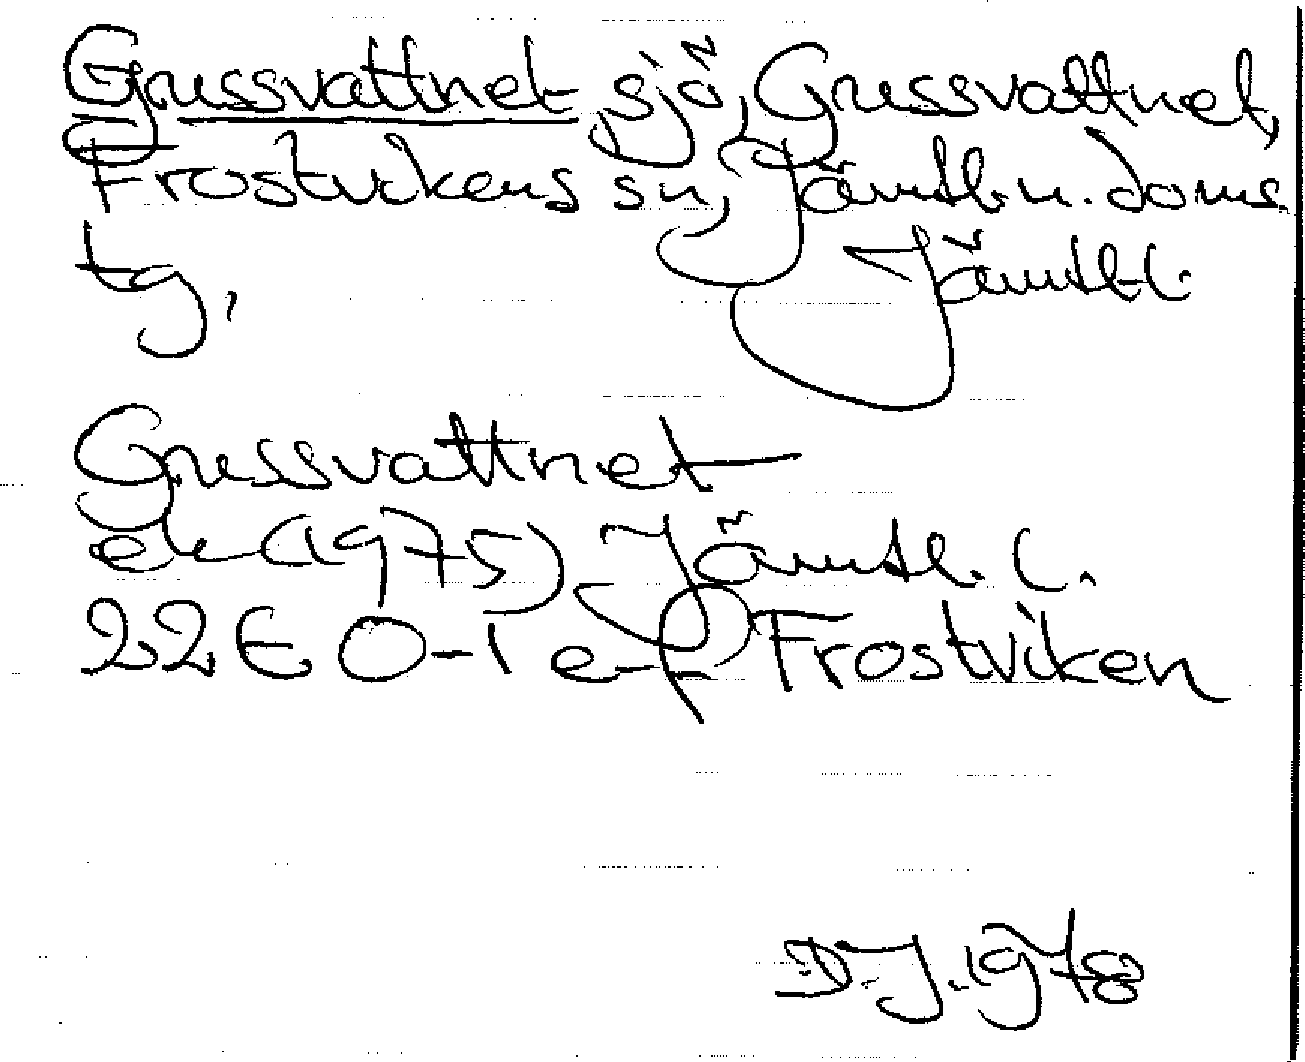 Grussvattnet sjö, Grussvattnet,
Frostvikens sn, Jämtl. n. doms.
tg, Jämtl. l.
Grussvattnet
ek (1975) Jämtl. l.
22E 0-1 e-f Frostviken
D.J. 1978